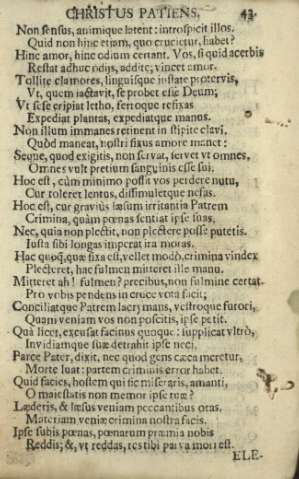 CHRISTUS PATIENS, 43
Non sensus, animique latent: introspicit illos.
Quid non hinc etiam, quo crucietur, habet?
Hinc amor, hinc odium certant. Vos, si quid acerbis
Restat adhuc odiis, addite; vincet amor.
Tollite clamores, linguisque instate protervis,
Vt, quem iactavit, se probet esse Deum;
Vt sese eripiat letho, ferroque refixas
Expediat plantas, expediatque manus.
Non illum immanes retinent in stipite clavi,
Quòd maneat, nostri fixus amore manet:
Seque, quod exigitis, non servat, servet vt omnes,
Omnes vult pretium sanguinis esse sui.
Hoc est, cùm minimo possit vos perdere nutu,
Cur toleret lentus, dissimuletque nefas.
Hoc est, cur graviùs læsum irritantia Patrem
Crimina, quàm pœnas sentiat ipse suas,
Nec, quia non plectit, non plectere posse putetis.
Iusta sibi longas imperat ira moras.
Hac quoq; quæ fixa est, vellet modò, crimina vindex
Plecteret, hac fulmen mitteret ille manu.
Mitteret ah! fulmen? precibus, non fulmine certat.
Pro vobis pendens in cruce vota facit;
Conciliatque Patrem lacrymans, vestroque furori,
Quam veniam vos non poscitis, ipse petit.
Quà licet, excusat facinus quoque: supplicat vltrò,
Invidiamque suæ detrahit ipse neci.
Parce Pater, dixit, nec quod gens cæca meretur,
Morte luat: partem criminis error habet.
Quid facies, hostem qui sic miseraris, amanti,
O maiestatis non memor ipse tuæ?
Læderis, & læsus veniam peccantibus oras.
Materiam veniæ crimina nostra facis.
Ipse subis pœnas, pœnarum præmia nobis
Reddis; &, vt reddas, res tibi parva mori est.
ELE-